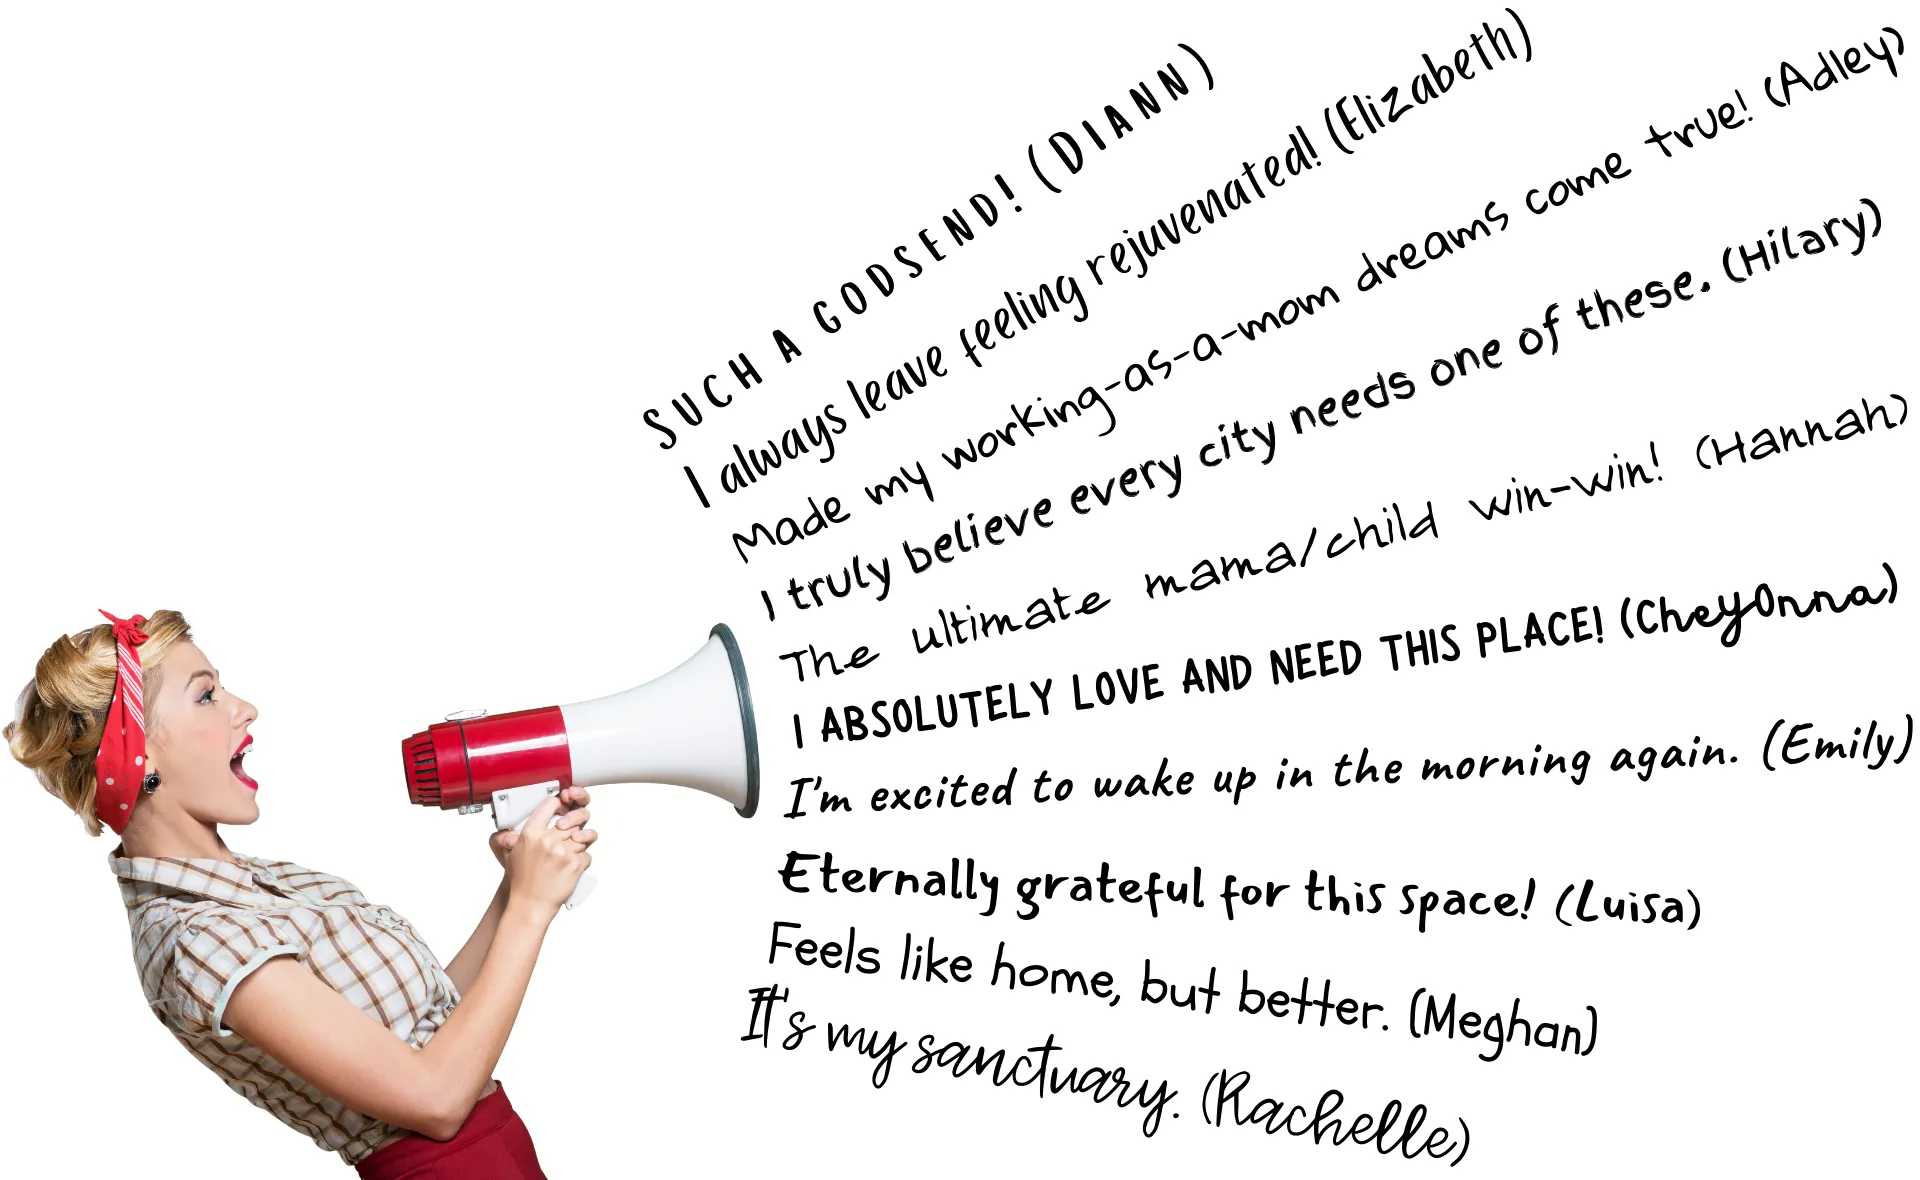 SUCH A GODSEND! (DIANN)
I always leave feeling rejuvenated! (Elizabeth)
Made my working-as-a-mom dreams come true! (Adley)
I truly believe every city needs one of these. (Hilary)
The ultimate mama/child win-win! (Hannah)
I ABSOLUTELY LOVE AND NEED THIS PLACE! (CheyOnna)
I'm excited to wake up in the morning again. (Emily)
Eternally grateful for this space! (Luisa)
Feels like home, but better. (Meghan)
It's my sanctuary. (Rachelle)